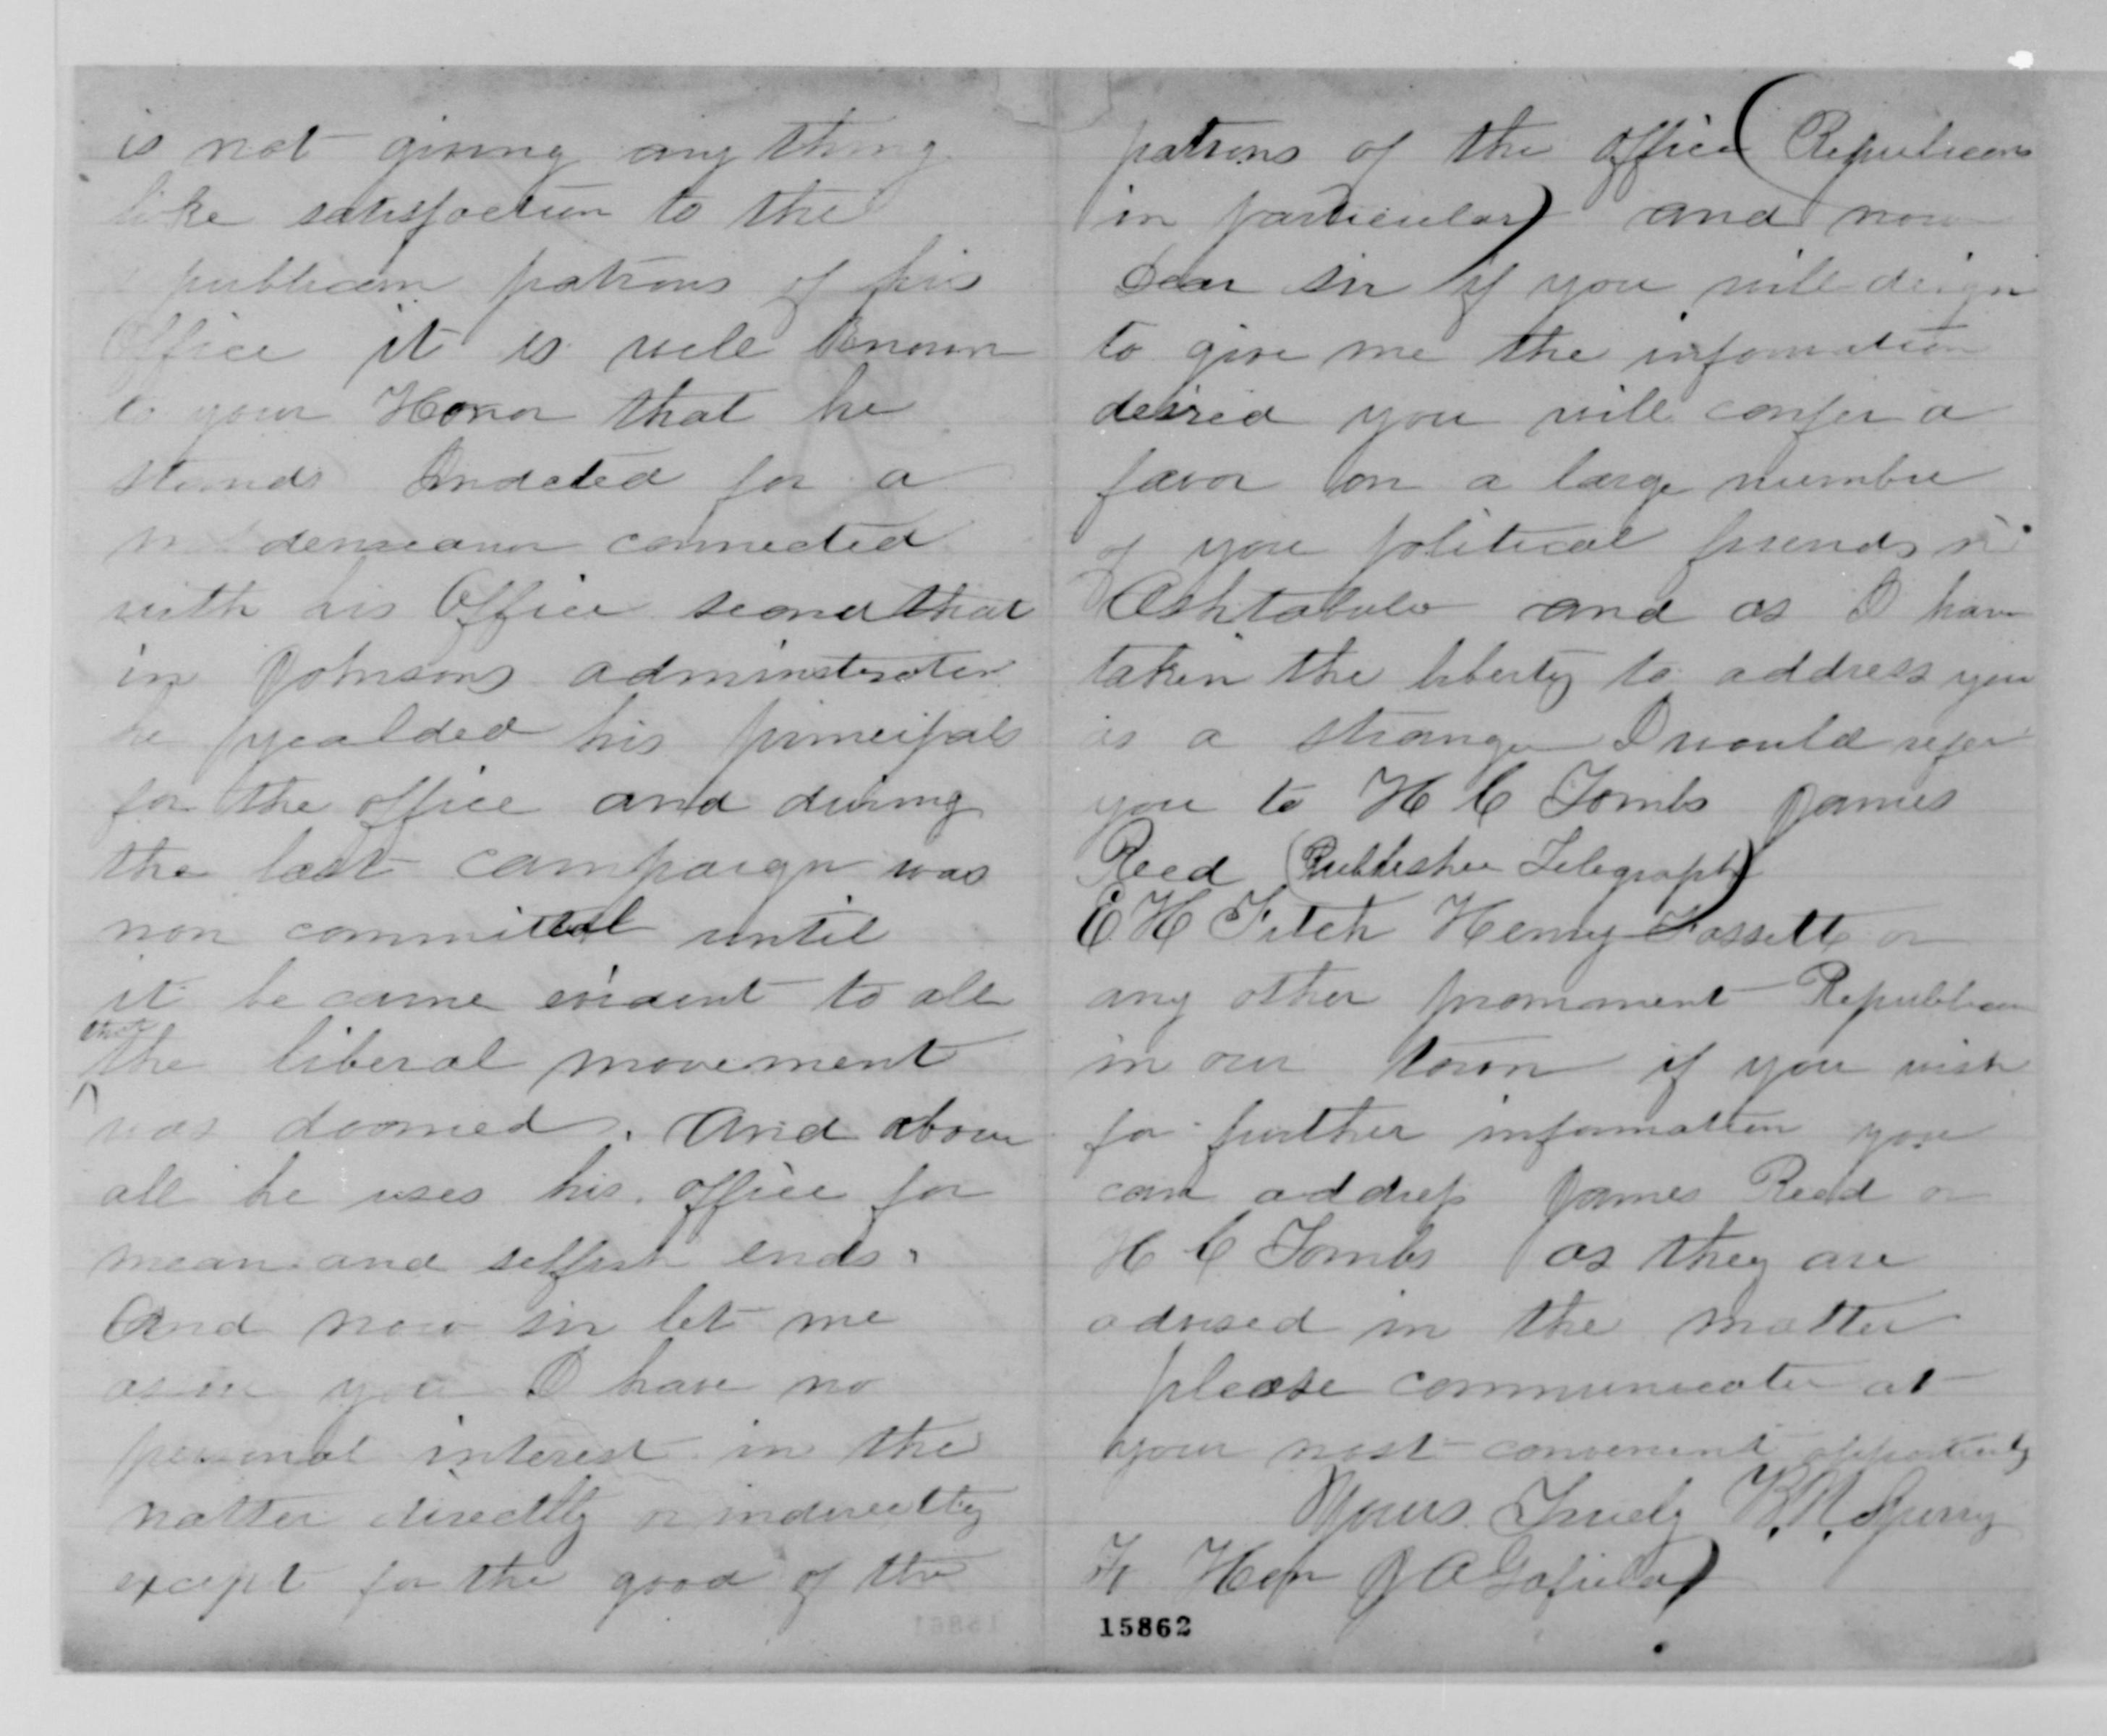 is not giving any thing
like satisfaction to the
publican patrons of his
Office it is well known
to your Honor that he
stands Indcted for a
demeanor connected
with his Office second that
in Johnsons adminstration
he yealded his principals
for the office and during
the last campaign was
non committal until
it be came evident to all
that
the liberal movement
was doomed. And above
all he uses his office for
mean and selfish ends.
And now sir let me
you I have no
personal interest in the
matter directly or indirectly
except for the good of the
patrons of the Office (Republicans
in particular) and now
Dear sir if you will deign
to give me the infomation
desired you will confer a
favor on a large number
of you political friends in
Ashtabula and as I have
taken the liberty to address you
as a stranger I would refer
you to H C Tombs James
Reed (Publisher Telegraph)
E H Fitch Henry Fassett or
any other promament Republican
in our town if you wish
for further information you
can address James Reed or
H C Tombs as they are
advised in the matter
please communicate at
your most convenient oppertunity
Yours Truely
To Hon J A Gafield
15862